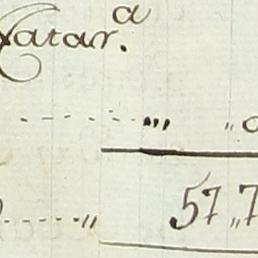 Catar.ª
„ „ 0
„ 57„7